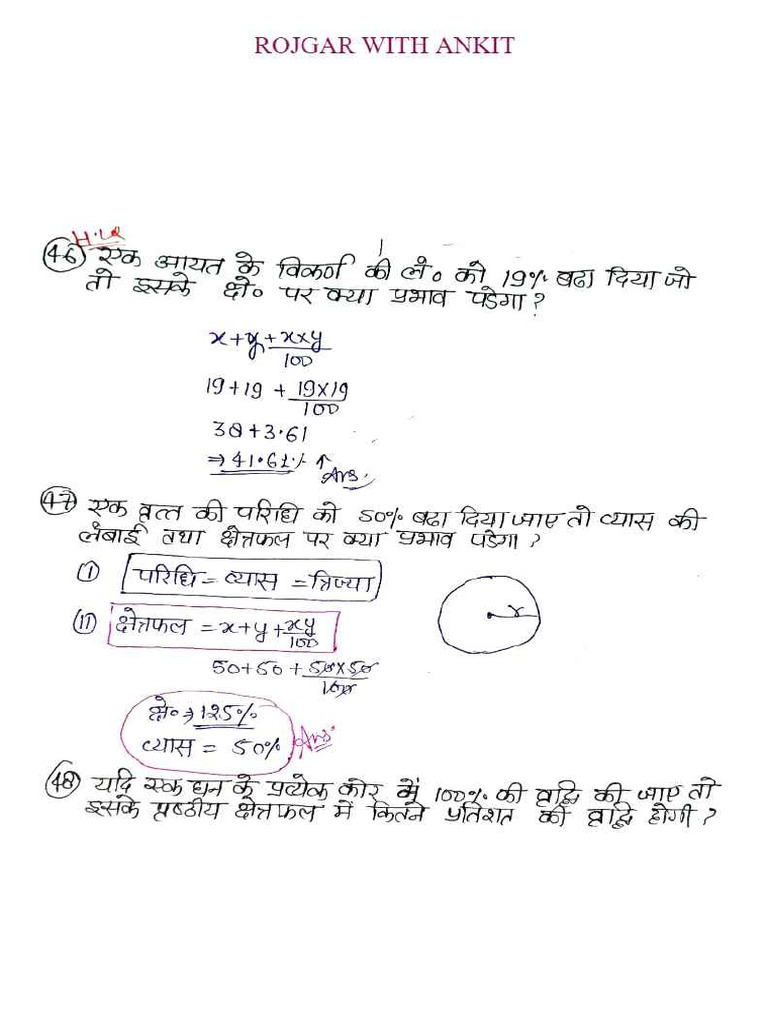 ROJGAR WITH ANKIT
H.W
(46) एक आयत के विकर्ण की लं० को 19% बढा दिया जो
तो इसके क्षे० पर क्या प्रभाव पडेगा ?
x+y+x×y/100
19+19+19×19/100
38+3.61
⇒41.61% ↑ Ans.
(47) एक व्रत्त की परिधि को 50% बढा दिया जाए तो व्यास की
लंबाई तथा क्षेत्रफल पर क्या प्रभाव पडेगा ?
(I) परिधि = व्यास = त्रिज्या
r
(II) क्षेत्रफल = x+y+xy/100
50+50+50×50/100
क्षे० ⇒125%
व्यास = 50% Ans.
(48) यदि एक घन के प्रत्येक कोर में 100% की व्रद्धि की जाए तो
इसके प्रष्ठीय क्षेत्रफल में कितने प्रतिशत की व्रद्धि होगी ?